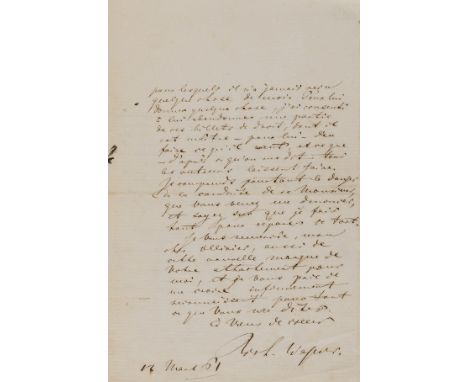 pour lesquels il n'a jamais reçu
quelque chose de moi. Pour lui
donner quelque chose, j'ai consenti
à lui abandonner une partie
de mes billets de droit, dont il
est maître — pour lui — d'en
faire ce qu'il veut, et ce que
— d'après ce qu'on me dit — tous
les auteurs laissent faire.
Je comprends pourtant le danger
de la conduite de ce Monsieur,
que vous venez me dénoncer,
et soyez sûr que je fais
tout pour réparer ce tort.
Je vous remercie, mon
cher Ollivier, aussi de
cette nouvelle marque de
votre attachement pour
moi, et je vous prie de
me croire infiniment
reconnaissant pour tout
ce que vous me dites.
à vous de coeur
Rich. Wagner.
Mars 61